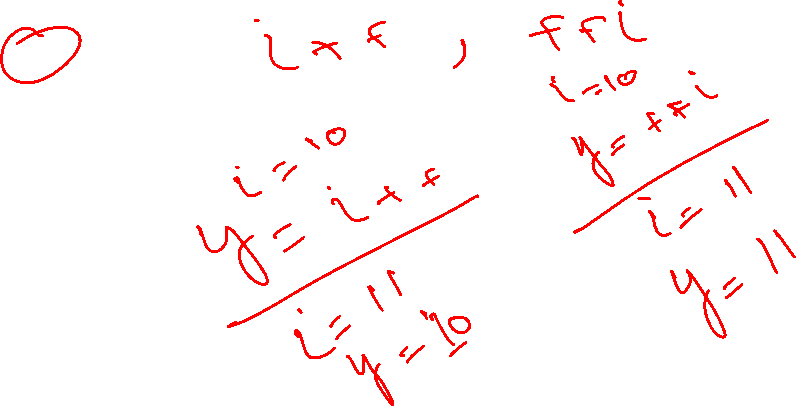 i++ , ++i
i=10
y=i++
i=11
y=10
i=10
y=++i
i=11
y=11